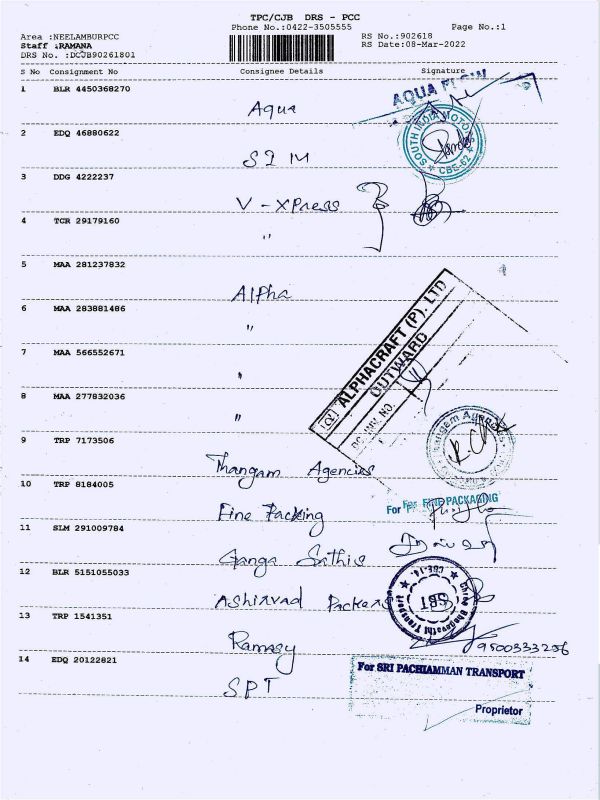 TPC/CJB DRS - PCC
Phone No.:0422-3505555
Page No.:1
Area :NEELAMBURPCC
RS No.:902618
Staff :RAMANA
RS Date:08-Mar-2022
DRS No. :DCJB90261801
S No Consignment No Consignee Details Signature
1 BLR 4450368270 Aqua
AQUA FLOW
2 EDQ 46880622 SIM
SOUTH INDIA MOTO
CBE-62
3 DDG 4222237 V-Xpress
4 TCR 29179160 "
5 MAA 281237832 Alpha
6 MAA 283881486 "
7 MAA 566552671 "
8 MAA 277832036 "
ALPHACRAFT (P). LTD
OUTWARD
NO.
9 TRP 7173506 Thangam Agencies
10 TRP 8184005 Fine Packing
For FINE PACKAGING
11 SLM 291009784 Ganga Sathis
12 BLR 5151055033 Ashirvad Packers
Shree Bhagavathi Transport
CBE-14.
SBT
13 TRP 1541351 Ramasy
9500333256
14 EDQ 20122821 SPT
For SRI PACHIAMMAN TRANSPORT
Proprietor